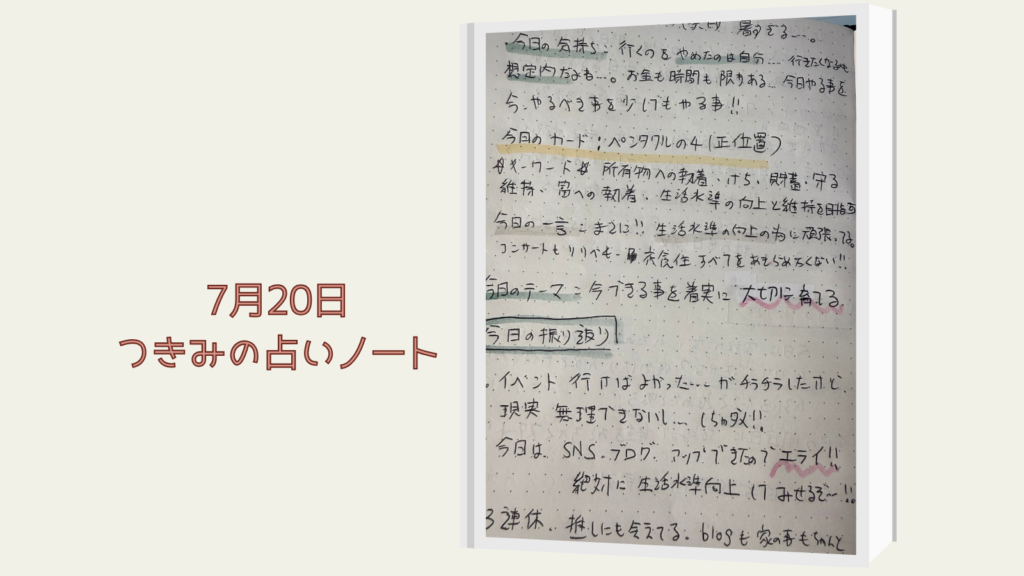 7月20日
つきみの占いノート
暑すぎる…。
今日の気持ち：行くのをやめたのは自分… 行きたくなるも
想定内だよね…。お金も時間も限りある… 今日やる事を
今、やるべき事を少しでもやる事!!
今日のカード：ペンタクルの4（正位置）
キーワード 所有物への執着、ケチ、財蓄、守る
維持、富への執着、生活水準の向上と維持を目指す
今日の一言：まさに!! 生活水準の向上の為に頑張ってる。
コンサートもリリベも 衣食住すべてをあきらめたくない!!
今日のテーマ：今できる事を着実に大切に育てる
今日の振り返り
・イベント行けばよかった…がチラチラしたけど、
現実 無理できないし…
今日は、SNS、ブログ、アップできたのでエライ!!
絶対に生活水準向上してみせるぞ〜!!
3連休、推しにも会えてる。blogも家の事もちゃんと